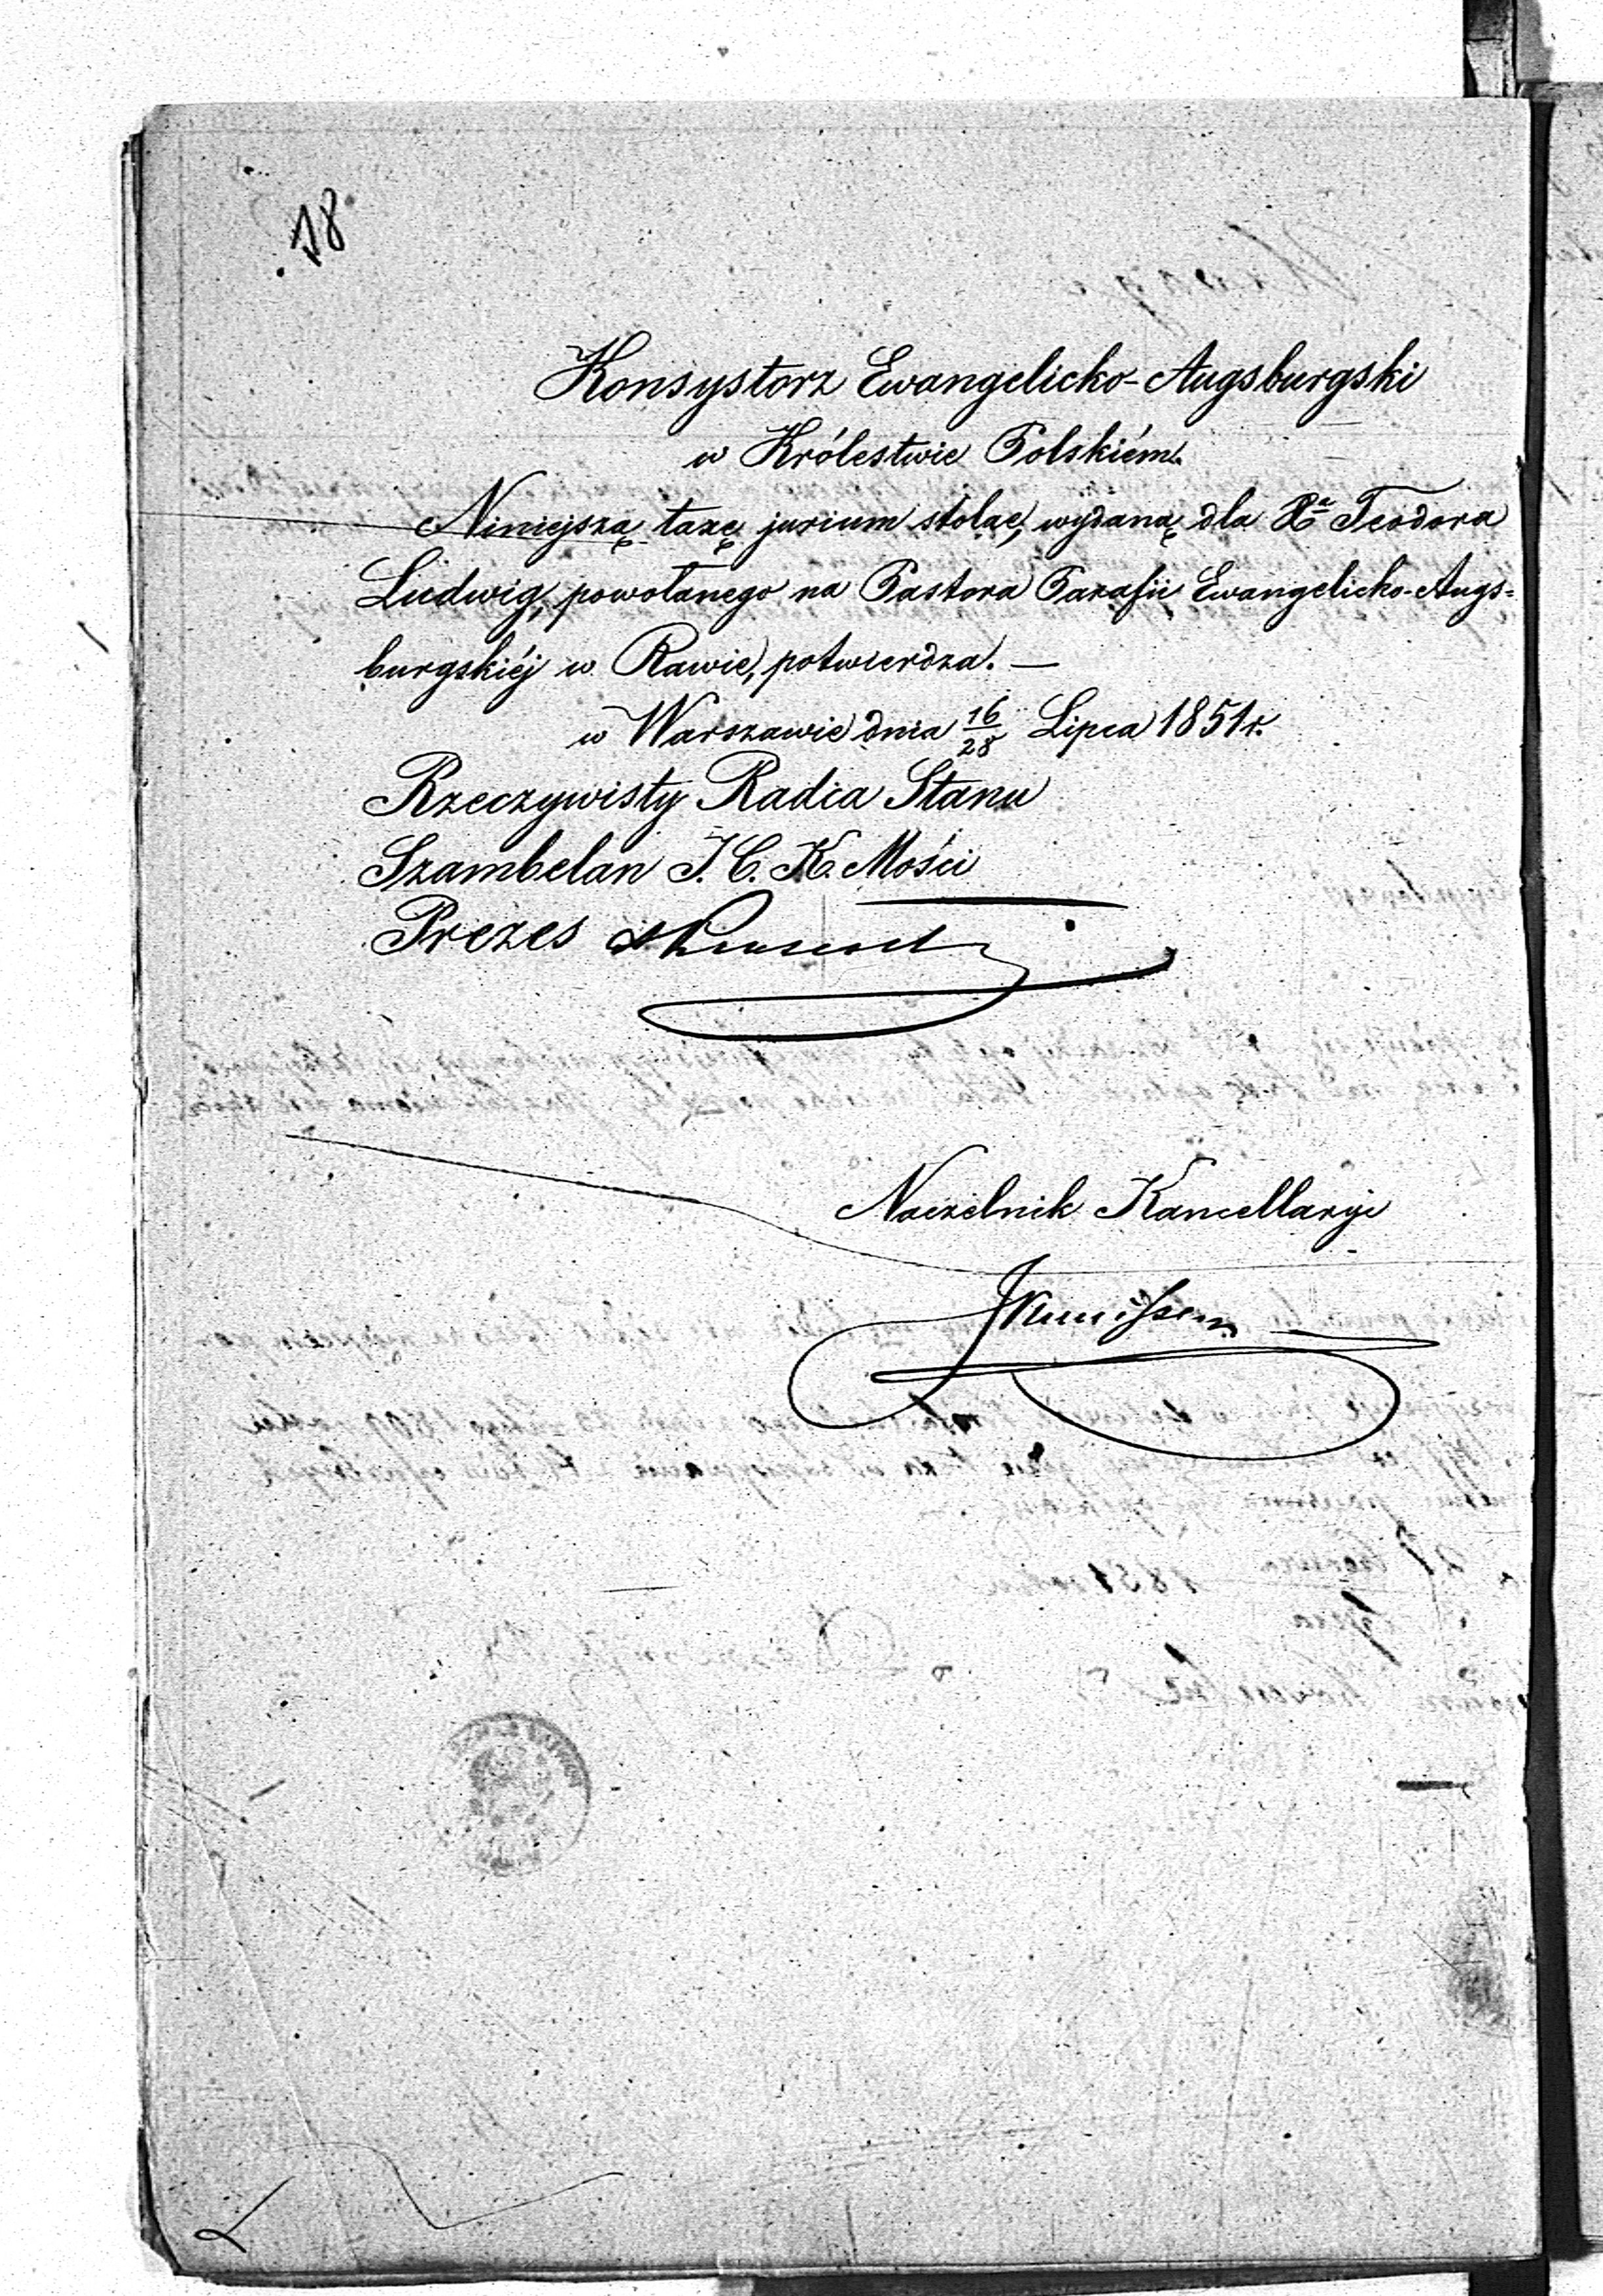 18
Konsystorz Ewangelicko-Augsburgski
w Królestwie Polskiém.
Niniejszą taxę jurium stolae, wydaną dla Xa Teodora
Ludwig, powołanego na Pastora Parafii Ewangelicko-Augs=
burgskiéj w Rawie, potwierdza. —
w Warszawie dnia 16/28 Lipca 1851 r.
Rzeczywisty Radca Stanu
Szambelan J. C. K. Mości
Prezes
Naczelnik Kancellaryi